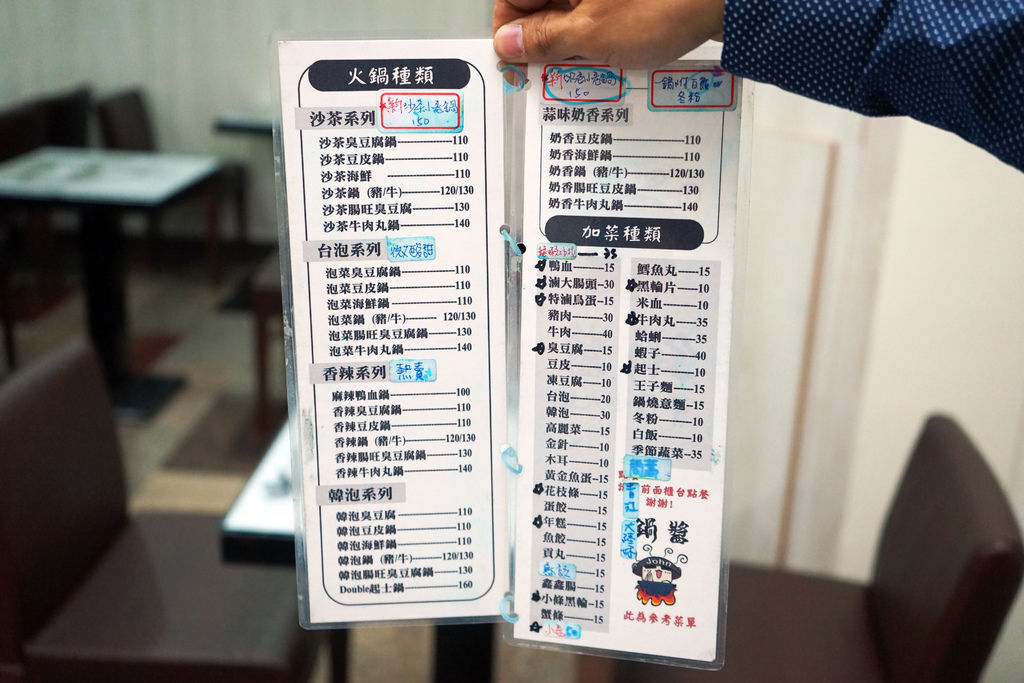 火鍋種類
沙茶系列
新沙茶小卷鍋
150
沙茶臭豆腐鍋----------110
沙茶豆皮鍋----------110
沙茶海鮮----------110
沙茶鍋 (豬/牛)----------120/130
沙茶腸旺臭豆腐----------130
沙茶牛肉丸鍋----------140
台泡系列
微酸甜
泡菜臭豆腐鍋----------110
泡菜豆皮鍋----------110
泡菜海鮮鍋----------110
泡菜鍋 (豬/牛)----------120/130
泡菜腸旺臭豆腐鍋----------130
泡菜牛肉丸鍋----------140
香辣系列
熱賣
麻辣鴨血鍋----------100
香辣臭豆腐鍋----------110
香辣豆皮鍋----------110
香辣鍋 (豬/牛)----------120/130
香辣腸旺臭豆腐鍋----------130
香辣牛肉丸鍋----------140
韓泡系列
韓泡臭豆腐----------110
韓泡豆皮鍋----------110
韓泡海鮮鍋----------110
韓泡鍋 (豬/牛)----------120/130
韓泡腸旺臭豆腐鍋----------130
Double起士鍋----------160
150
冬粉
蒜味奶香系列
奶香豆皮鍋----------110
奶香海鮮鍋----------110
奶香鍋 (豬/牛)----------120/130
奶香腸旺豆皮鍋----------130
奶香牛肉丸鍋----------140
加菜種類
35
鴨血-----15
滷大腸頭--30
特滷鳥蛋--15
豬肉-----30
牛肉-----40
臭豆腐-----15
豆皮-----10
凍豆腐-----10
台泡-----20
韓泡-----30
高麗菜-----15
金針-----10
木耳-----10
黃金魚蛋--15
花枝條-----15
蛋餃-----15
年糕-----15
魚餃-----15
貢丸-----15
-----15
鑫鑫腸-----15
小條黑輪--15
蟹條-----15
小卷50
鱈魚丸-----15
黑輪片-----10
米血-----10
牛肉丸-----35
蛤蜊-----35
蝦子-----40
起士-----10
王子麵-----15
鍋燒意麵--15
冬粉-----10
白飯-----10
季節蔬菜--35
前面櫃台點餐
謝謝!
鍋醬
John
此為參考菜單